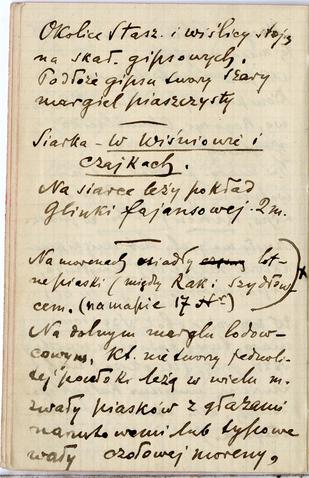 Okolice Stasz. i wiślicy stoją
na skał. gipsowych.
Podłoże gipsu tworzy szary
margiel piaszczysty
Siarka – w Wiśniowie i
Czajkach.
Na siarce leży pokład
Glinki fajansowej. 2 m.
Na morenach osiadły lot-
ne piaski (między Rak i Szydłow-
cem. (na mapie 17
Na dolnym marglu lodow-
cowym, kt. nie tworzy jednoli-
tej powłoki leżą w wielu m.
zwały piasków z głazami
narzutowemi lub typowe
wały czołowej moreny,